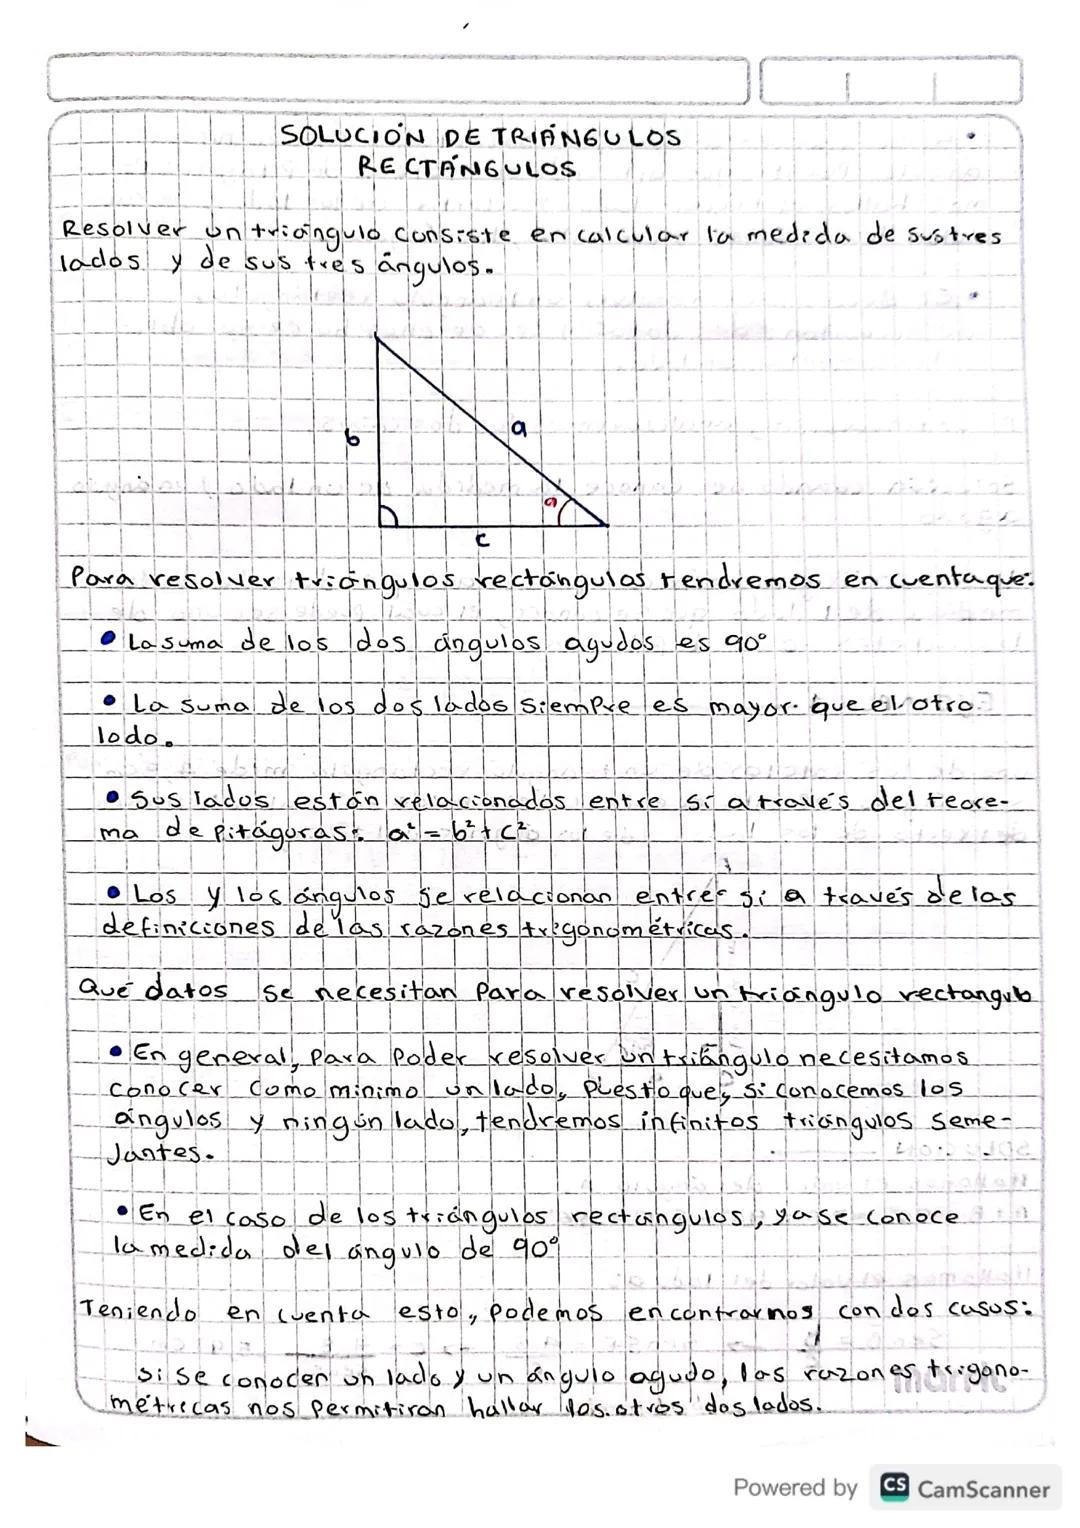 SOLUCIÓN DE TRIÁNGULOS
RECTÁNGULOS
Resolver un triángulo consiste en calcular la medida de sus tres
lados y de sus tres ángulos.
b
a
a
c
Para resolver triángulos rectángulos tendremos en cuenta que:
• La suma de los dos ángulos agudos es 90°
• La suma de los dos lados siempre es mayor que el otro
lado.
• Sus lados están relacionados entre sí a través del teore-
ma de pitágoras: a² = b² + c²
• Los y los ángulos se relacionan entre si a través de las
definiciones de las razones trigonométricas.
Qué datos se necesitan para resolver un triángulo rectangulo
• En general, para poder resolver un triángulo necesitamos
conocer como minimo un lado, puesto que, si conocemos los
ángulos y ningún lado, tendremos infinitos triángulos seme-
jantes.
• En el caso de los triángulos rectángulos, ya se conoce
la medida del ángulo de 90°
Teniendo en cuenta esto, podemos encontrarnos con dos casos:
si se conocen un lado y un ángulo agudo, las razones trigono-
métricas nos permitiran hallar los otros dos lados.
Powered by CS CamScanner